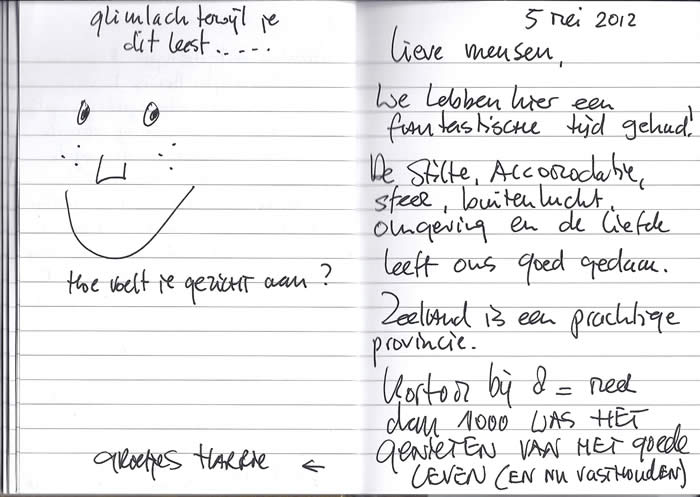 glimlach terwijl je
dit leest.....
Hoe voelt je gezicht aan?
GROETJES HARRIE ←
5 mei 2012
Lieve mensen,
We hebben hier een
fantastische tijd gehad!
De Stilte, Accomodatie,
sfeer, buitenlucht,
omgeving en de liefde
heeft ons goed gedaan.
Zeeland is een prachtige
provincie.
Kortom bij 8 = meer
dan 1000 WAS HET
GENIETEN VAN HET goede
LEVEN (EN NU VASTHOUDEN)